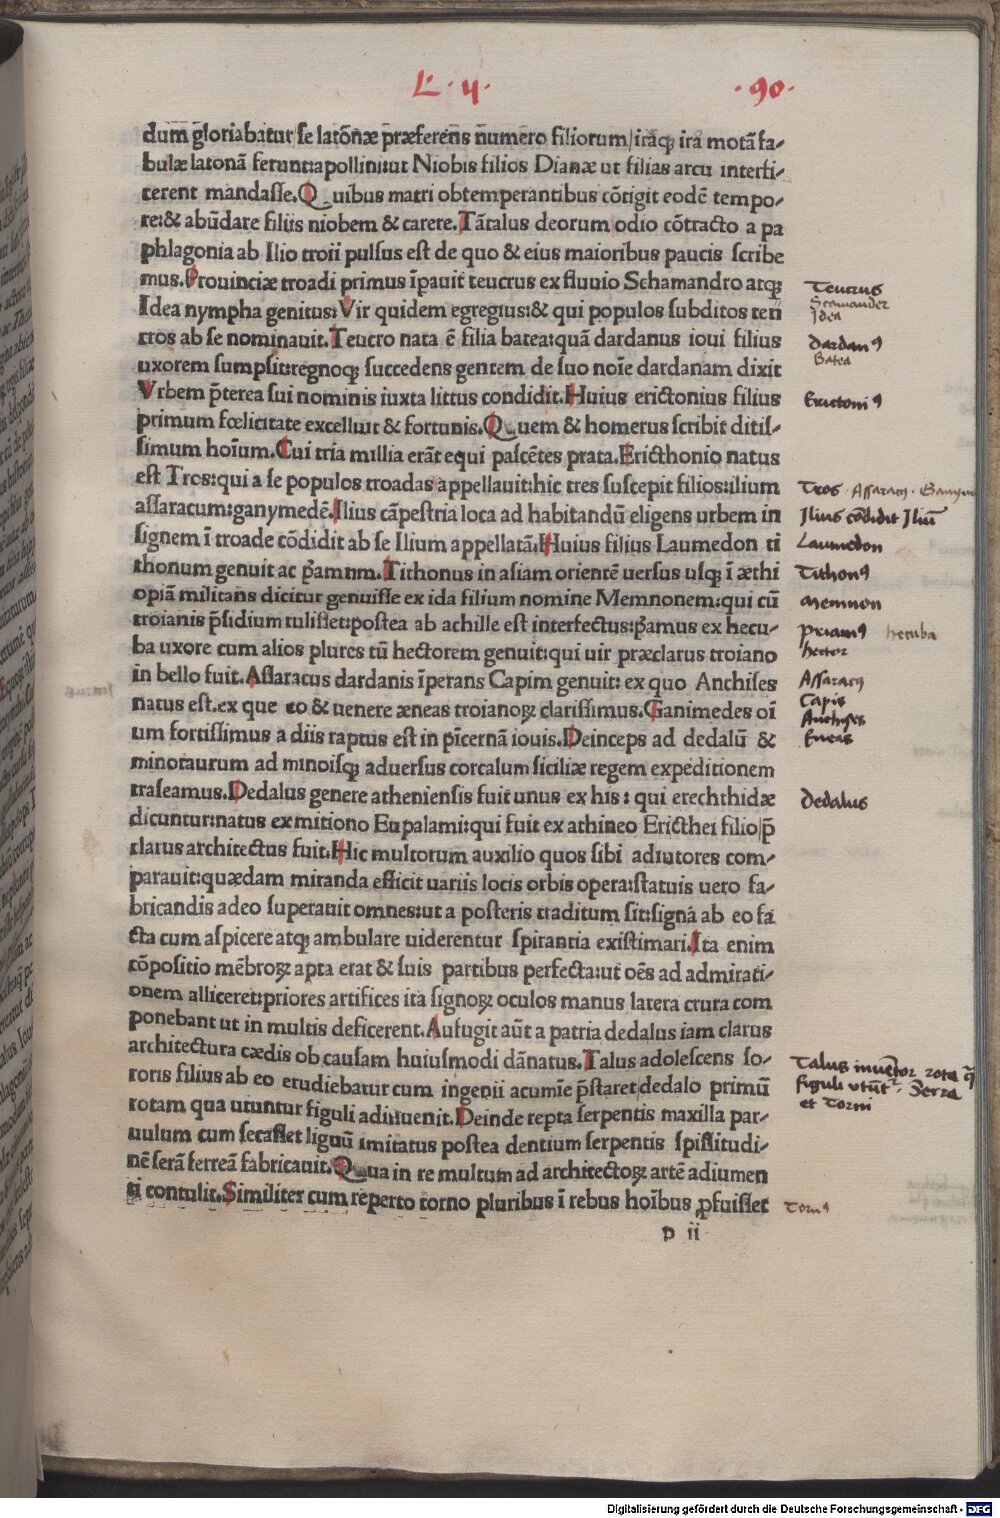 L. 4.
.90.
dum gloriabatur/se latõnæ præferens numero filiorum/iraq; ira motã fa-
bulæ latonã feruntapollini:ut Niobis filios Dianæ ut filias arcu interfi-
cerent mandasse.Quibus matri obtemperantibus cõtigit eodẽ tempo-
re:& abũdare filiis niobem & carere.Tãtalus deorum odio cõtracto a pa
phlagonia ab Ilio troii pulsus est de quo & eius maioribus paucis scribe
mus.Prouinciæ troadi primus ĩpauit teucrus ex fluuio Schamandro atq;
Idea nympha genitus:Vir quidem egregius:& qui populos subditos teu
cros ab se nominauit.Teucro nata ẽ filia batea:quã dardanus ioui filius
uxorem sumpsit:regnoq; succedens gentem de suo noĩe dardanam dixit
Vrbem p̃terea sui nominis iuxta littus condidit.Huius erictonius filius
primum fœlicitate excelluit & fortunis.Quem & homerus scribit ditis-
simum hoĩum.Cui tria millia erãt equi pascẽtes prata.Ericthonio natus
est Tros:qui a se populos troadas appellauit:hic tres suscepit filios:ilium
assaracum:ganymedẽ.Ilius cãpestria loca ad habitandũ eligens urbem in
signem ĩ troade cõdidit ab se Ilium appellatã.Huius filius Laumedon ti
thonum genuit ac p̃amum.Tithonus in asiam orientẽ uersus usq; ĩ æthi
opiã militans dicitur genuisse ex ida filium nomine Memnonem:qui cũ
troianis p̃sidium tulisset:postea ab achille est interfectus:p̃amus ex hecu-
ba uxore cum alios plures tũ hectorem genuit:qui uir præclarus troiano
in bello fuit.Assaracus dardanis ĩperans Capim genuit: ex quo Anchises
natus est.ex que eo & uenere æneas troianoꝝ clarissimus.Ganimedes oĩ
um fortissimus a diis raptus est in pĩcernã iouis.Deinceps ad dedalũ &
minotaurum ad minoisq; aduersus corcalum siciliæ regem expeditionem
traseamus.Dedalus genere atheniensis fuit unus ex his : qui erechthidæ
dicuntur:natus ex mitiono Eupalami:qui fuit ex athineo Ericthei filio/p̃
clarus architectus fuit.Hic multorum auxilio quos sibi adiutores com-
parauit:quædam miranda efficit uariis locis orbis opera:statuis uero fa-
bricandis adeo superauit omnes:ut a posteris traditum sit:signa ab eo fa
cta cum aspicere atq; ambulare uiderentur spirantia existimari.Ita enim
cõpositio mẽbroꝝ apta erat & suis partibus perfecta:ut oẽs ad admirati-
onem alliceret:priores artifices ita signoꝝ oculos manus latera crura com
ponebant ut in multis deficerent.Aufugit aũt a patria dedalus iam clarus
architectura cædis ob causam huiusmodi dãnatus.Talus adolescens so-
roris filius ab eo erudiebatur cum ingenii acumĩe p̃staret/dedalo primũ
rotam qua utuntur figuli adinuenit.Deinde repta serpentis maxilla par-
uulum cum secasset lignũ imitatus postea dentium serpentis spissitudi-
nẽ serã ferreã fabricauit.Qua in re multum ad architectoꝝ artẽ adiumen
ti contulit.Similiter cum reperto torno pluribus ĩ rebus hoĩbus ꝓfuisset
p ii
Teucrus
Scamander
Idea
dardanꝰ
Batea
Erictoniꝰ
Tros . Assaracꝰ .
Ilius cõdidit Iliũ
Laumedon
Tithonꝰ
Memnon
Priamꝰ hecuba
hector
Assaracꝰ
Capis
Anchises
Eneas
Dedalus
Talus inuẽtor rote q̃
figuli vtũtr . Serra
et Torni
Tornꝰ
Digitalisierung gefördert durch die Deutsche Forschungsgemeinschaft - DFG